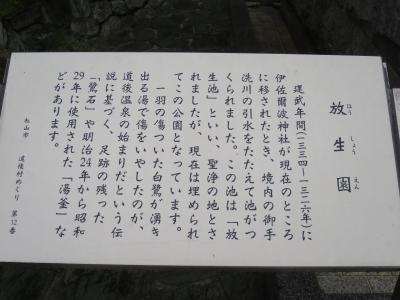 放生園
ほう しょう えん
建武年間(一三三四―一三二六年)に
伊佐爾波神社が現在のところ
に移されたとき、境内の御手
洗川の引水をたたえて池がつ
くられました。この池は「放
生池」といい、聖浄の地とさ
れましたが、現在は埋められ
てこの公園となっています。
一羽の傷ついた白鷺が湧き
出る湯で傷をいやしたのが、
道後温泉の始まりだという伝
説に基づく、足跡の残った
「鷺石」や明治24年から昭和
29年に使用された「湯釜」な
どがあります。
松山市 道後村めぐり 第12番